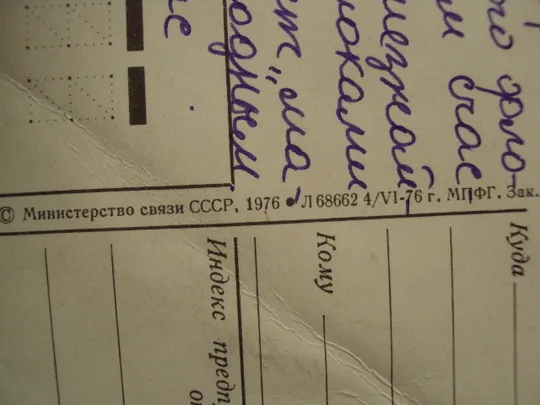 ого фло-
м счас
лезной
локами
ст „ма-
одным
е
© Министерство связи СССР, 1976 • Л 68662 4/VI-76 г. МПФГ. Зак.
Куда
Кому
Индекс предп